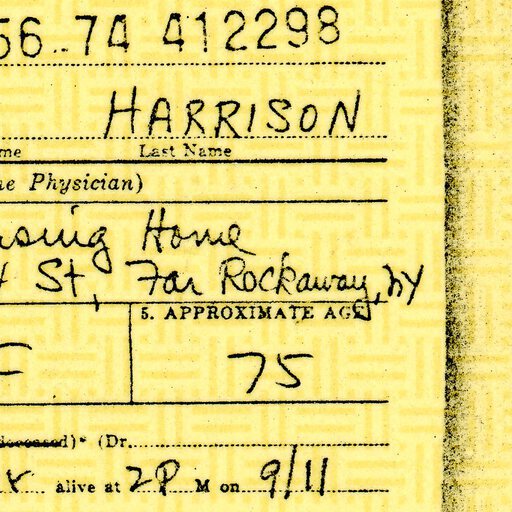 56..74 412298
HARRISON
me Last Name
ne Physician)
rsing Home
H St, Far Rockaway, NY
5. APPROXIMATE AGE
F 75
deceased)* (Dr.
alive at 2P M on 9/11